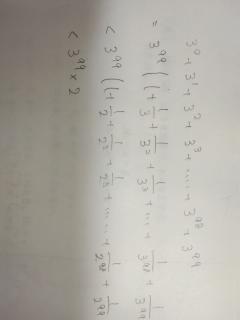 3⁰ + 3¹ + 3² + 3³ + ····· + 3⁹⁸ + 3⁹⁹
= 3⁹⁹ (1 + 1/3 + 1/3² + 1/3³ + ···· + 1/3⁹⁸ + 1/3⁹⁹
< 3⁹⁹ (1 + 1/2 + 1/2² + 1/2³ + ···· + 1/2⁹⁸ + 1/2⁹⁹
< 3⁹⁹ × 2